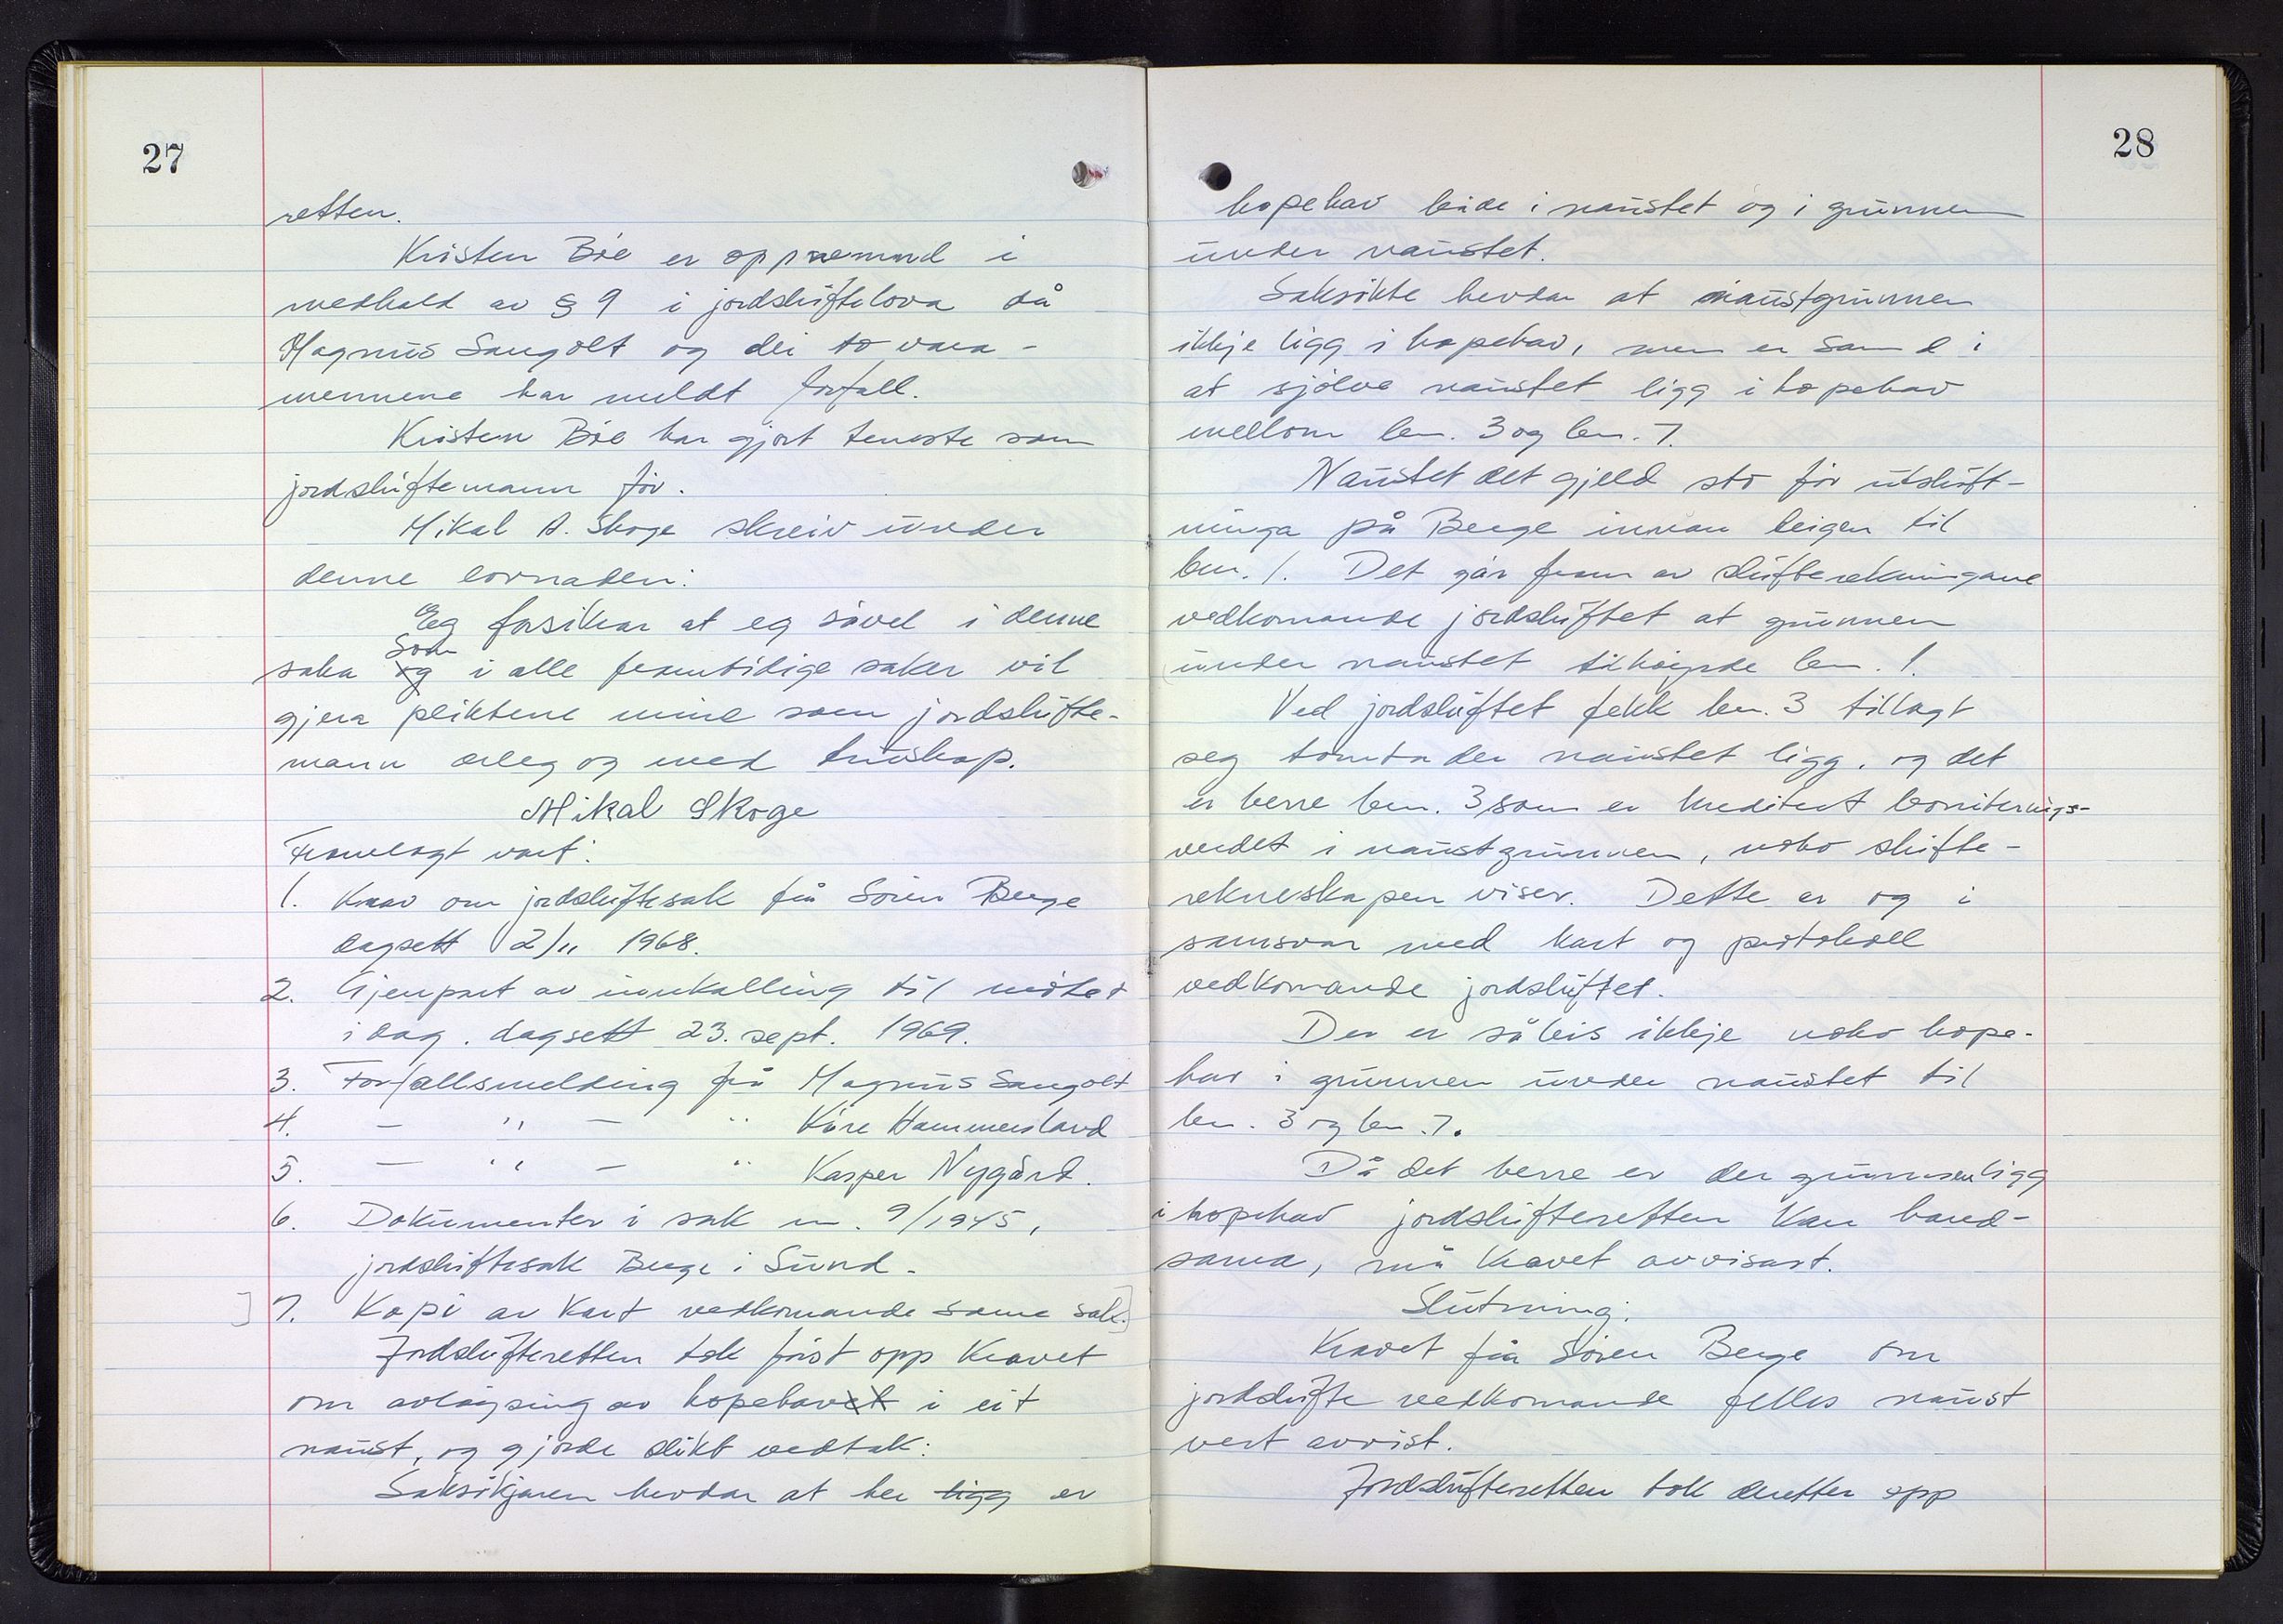 27
retten.
Kristen Bøe er oppnemnd i
medhald av § 9 i jordskiftelova då
Magnus Sangolt og dei to vara-
mennene har meldt forfall.
Kristen Bøe har gjort teneste som
jordskiftemann før.
Mikal A. Skoge skreiv under
denne lovnaden:
Eg forsikrar at eg såvel i denne
saka og som i alle framtidige saker vil
gjera pliktene mine som jordskifte-
mann ærleg og med truskap.
Mikal Skoge
Framlagt vart:
1. Krav om jordskiftesak frå Sören Berge
dagsett 2/11 1968.
2. Gjenpart av innkalling til møtet
i dag. dagsett 23. sept. 1969.
3. Forfallsmelding frå Magnus Sangolt
4. — " — " Kåre Hammersland
5. — " — " Kasper Nygård.
6. Dokumenter i sak nr. 9/1945,
jordskiftesak Berge i Sund.
] 7. Kopi av kart vedkomande same sak.]
Jordskifteretten tok først opp kravet
om avløysing av hopehavet i eit
naust, og gjorde slikt vedtak:
Saksøkjaren hevdar at her ligg er
28
hopehav både i naustet og i grunnen
under naustet.
Saksøkte hevdar at naustgrunnen
ikkje ligg i hopehav, men er samd i
at sjølve naustet ligg i hopehav
mellom bnr. 3 og bnr. 7.
Naustet det gjeld sto før utskift-
ninga på Berge innan teigen til
bnr. 1. Det går fram av skifterekningane
vedkomande jordskiftet at grunnen
under naustet tilhøyrde bnr. 1.
Ved jordskiftet fekk bnr. 3 tillagt
seg tomta der naustet ligg, og det
er berre bnr. 3 som er kreditert boniterings-
verdet i naustgrunnen, noko skifte-
rekneskapen viser. Dette er og i
samsvar med kart og protokoll
vedkomande jordskiftet.
Der er såleis ikkje noko hope-
hav i grunnen under naustet til
bnr. 3 og bnr. 7.
Då det berre er der grunnen ligg
i hopehav jordskifteretten kan hand-
sama, må kravet avvisast.
Slutning:
Kravet frå Sören Berge om
jordskifte vedkomande felles naust
vert avvist.
Jordskifteretten tok deretter opp